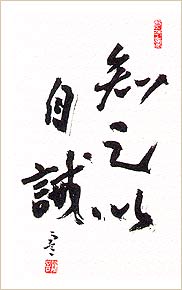 知之以
自誠